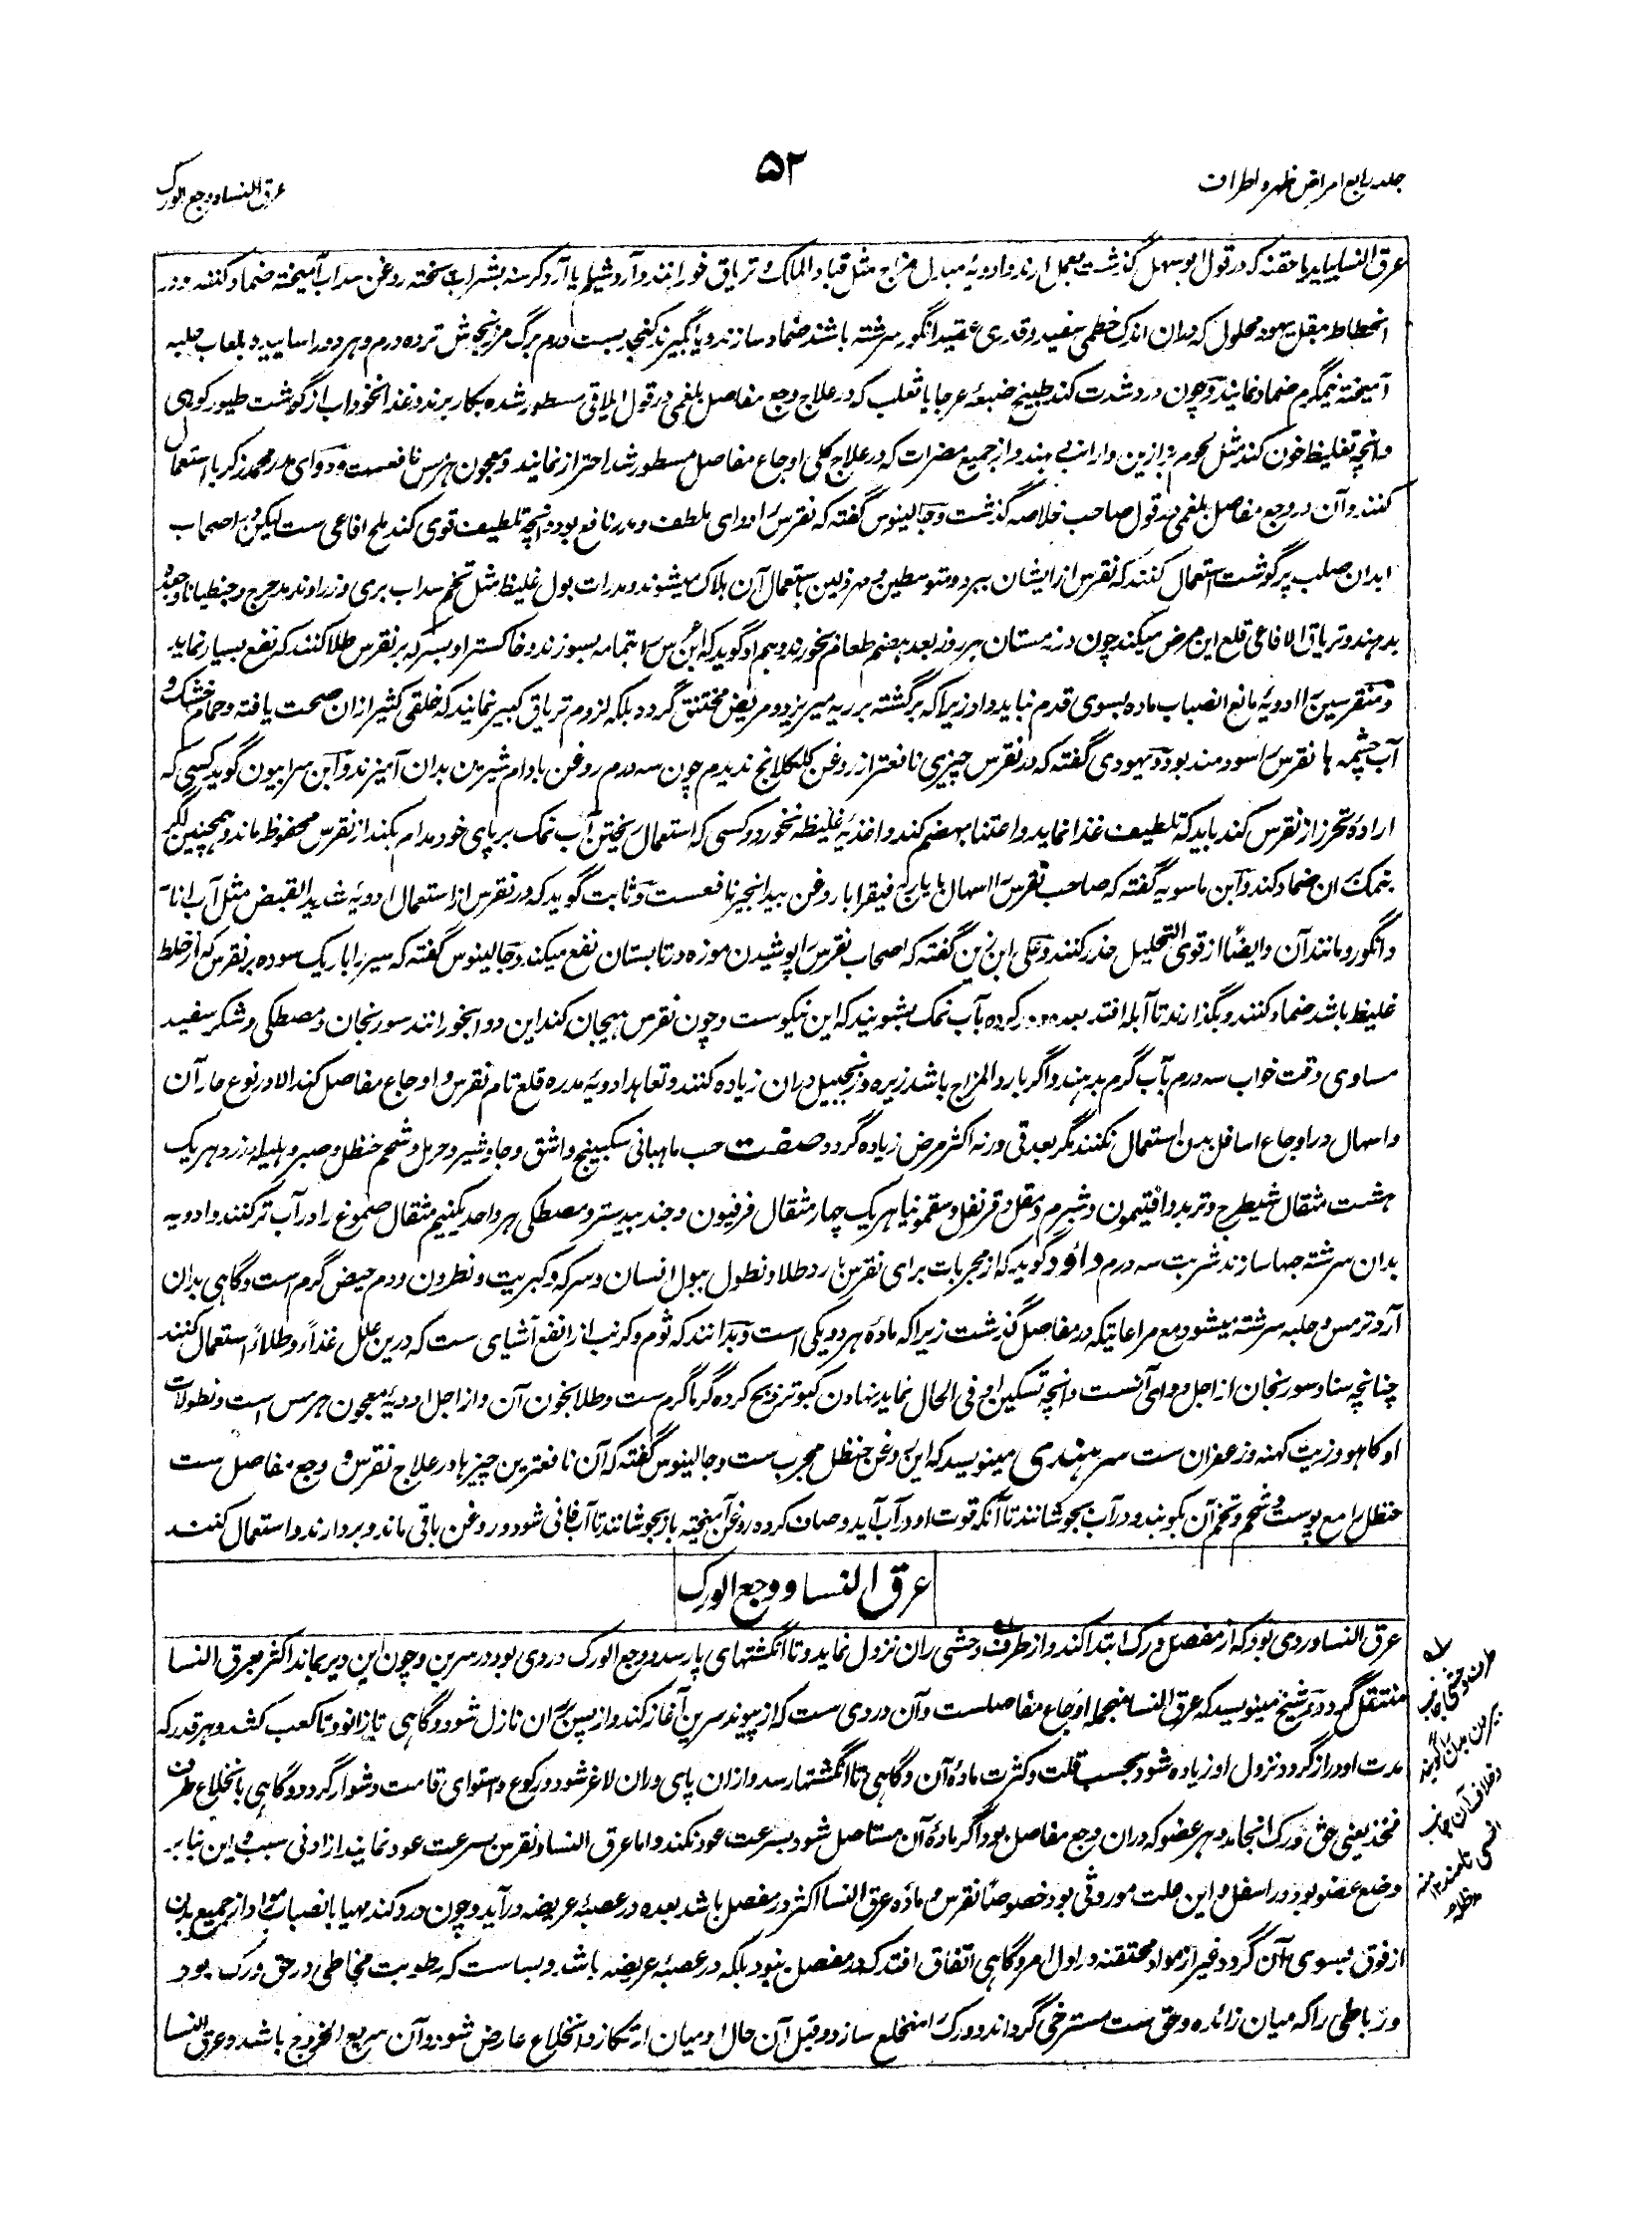 جلد رابع امراض ظهر و اطراف
۵۲
عرق النسا و وجع الورک
عرق النسا بیاید یا حقنه که در قول ابو سهل گذشت بعمل ارند و ادویهٔ مبدل مزاج مثل قباد الملک و تریاق خورانند و آرد شیلم یا آرد کرسنه بشراب پخته روغن سداب آمیخته ضماد کنند و در
انحطاط مقل یهود محلول که دران اندک خطمی سفید و قدری عقید انگور سرشته باشند ضماد سازند و یا بگیرند کنجد بست درم برگ مرزنجوش تر ده درم و هر دو را ساییده بلعاب حلبه
آمیخته نیمگرم ضماد نمایند و چون درد شدت کند طبیخ ضبعهٔ عرجا یا ثعلب که در علاج وجع مفاصل بلغمی در قول ایلاقی مسطور شده بکار برند و غذا نخوداب از گوشت طیور کوهی
و انچه تغلیظ خون کند مثل لحوم و ارانب بدهند و از جمیع مضرات که در علاج کلی اوجاع مفاصل مسطور شد احتراز نمایند و معجون هرمس نافعست و دوای مدر محمد زکریا استعمال
کنند و آن در وجع مفاصل بلغمی در قول صاحب خلاصه گذشت و جالینوس گفته که نقرس را دوای ملطف و مدر نافع بود و انچه تلطیف قوی کند ملح افاعی ست لیکن در اصحاب
ابدان صلب پر گوشت استعمال کنند که نقرس از ایشان ببرد و متوسطین و مهزولین باستعمال آن هلاک میشوند و مدرات بول غلیظ مثل تخم سداب بری و زراوند مدحرج و جنطیانا و جعده
بدهند و تریاق الافاعی قلع این مرض میکند چون در زمستان هر روز بعد هضم طعام بخورند و هم او گوید که ابن عرس را بتمامه بسوزند و خاکستر او بسرکه بر نقرس طلا کنند که نفع بسیار نماید
و منقرسین را ادویهٔ مانع انصباب ماده بسوی قدم نباید داد زیرا که برگشته بر ریه میریزد و مریض مختنق گردد بلکه لزوم تریاق کبیر نمایند که خلقی کثیر ازان صحت یافته و حمام خشک و
آب چشمه ها نقرس را سودمند بود و یهودی گفته که در نقرس چیزی نافعتر از روغن کلکلانج ندیدم چون سه درم روغن بادام شیرین بدان آمیزند و ابن سرابیون گوید کسی که
ارادهٔ تحرز از نقرس کند باید که تلطیف غذا نماید و اعتنا بهضم کند و اغذیهٔ غلیظه نخورد و کسی که استعمال ریختن آب نمک بر پای خود مدام بکند از نقرس محفوظ ماند و همچنین اگر
بنمک ران ضماد کند و ابن ماسویه گفته که صاحب نقرس را اسهال بایارج فیقرا با روغن بیدانجیر نافعست و ثابت گوید که در نقرس از استعمال ادویهٔ شدید القبض مثل آب انار
و انگور و مانند آن و ایضًا از قوی التحلیل حذر کنند و علی ابن زین گفته که اصحاب نقرس را پوشیدن موزه در تابستان نفع میکند و جالینوس گفته که سیر را باریک سوده بر نقرس که از خلط
غلیظ باشد ضماد کنند و بگذارند تا آبله افتد بعده کرده بآب نمک بشویند که این نیکوست و چون نقرس هیجان کند این دوا بخورانند سورنجان و مصطکی و شکر سفید
مساوی وقت خواب سه درم بآب گرم بدهند و اگر بارد المزاج باشد زیره و زنجبیل دران زیاده کنند و تعاهد ادویهٔ مدره قلع تام نقرس و اوجاع مفاصل کند الا در نوع حار آن
و اسهال در اوجاع اسافل بدن استعمال نکنند مگر بعد قی ورنه اکثر مرض زیاده گردد صفت حب ماهبانی سکبینج و اشق و جاوشیر و حرمل و شحم حنظل و صبر و هلیله زرد هر یک
هشت مثقال شیطرج و تربد و افتیمون و شبرم و مقل و قرنفل و سقمونیا هر یک چهار مثقال فرفیون و جند بیدستر و مصطکی هر واحد یکنیم مثقال صموغ را در آب تر کنند و ادویه
بدان سرشته حبها سازند شربت سه درم داؤد گوید که از مجربات برای نقرس بارد طلا و نطول ببول انسان و سرکه و کبریت و نطرون و دم حیض گرم است و گاهی بدان
آرد ترمس و حلبه سرشته میشود مع مراعاتیکه در مفاصل گذشت زیرا که مادهٔ هر دو یکی است و بدانند که ثوم و کرنب از انفع اشیای ست که درین علل غذاءً و طلاءً استعمال کنند
چنانچه سنا و سورنجان از اجل دوای آنست و انچه تسکین او فی الحال نماید نهادن کبوتر ذبح کرده گرماگرم ست و طلا بخون آن و از اجل ادویه معجون هرمس است و نطولات
او کاهو و زیت کهنه و زعفران ست سرهندی مینویسد که این روغن حنظل مجرب ست و جالینوس گفته که آن نافعترین چیزها در علاج نقرس و وجع مفاصل ست
حنظل را مع پوست و شحم و تخم آن بکوبند و در آب بجوشانند تا آنکه قوت او در آب آید و صاف کرده روغن آمیخته باز بجوشانند تا آب فانی شود و روغن باقی ماند و بردارند و استعمال کنند
عرق النسا و وجع الورک
عرق النسا دردی بود که از مفصل ورک ابتدا کند و از طرف وحشی ران نزول نماید و تا انگشتهای پا رسد و وجع الورک دردی بود در سرین و چون این دیر بماند اکثر بعرق النسا
منتقل گردد و شیخ مینویسد که عرق النسا منجمله اوجاع مفاصلست و آن دردی ست که از پیوند سرین آغاز کند و از پس ران نازل شود و گاهی تا زانو و تا کعب کشد و هر قدر که
مدت او دراز گردد نزول او زیاده شود بحسب قلت و کثرت مادهٔ آن و گاهی تا انگشتها رسد و ازان پای و ران لاغر شود و رکوع و استوای قامت دشوار گردد و گاهی بانخلاع طرف
فخذ یعنی حق ورک انجامد و هر عضو که دران وجع مفاصل بود اگر مادهٔ آن مستاصل شود بسرعت عود نکند و اما عرق النسا و نقرس بسرعت عود نمایند از ادنی سبب و این بنا بر
وضع عضو بود در اسفل و این علت موروثی بود خصوصًا نقرس و مادهٔ عرق النسا اکثر در مفصل باشد بعده در عصبهٔ عریضه درآید و چون درد کند مهیا بانصباب مواد از جمیع بدن
از فوق بسوی آن گردد غیر از مواد محتقنه در اول امر و گاهی اتفاق افتد که در مفصل نبود بلکه در عصبهٔ عریضه باشد و بسا ست که رطوبت مخاطی در حق ورک بود
و رباطی را که میان زائده و حق ست مسترخی گرداند و ورک را منخلع سازد و قبل آن حال او میان ارتکاز و انخلاع عارض شود و آن سریع الخروج باشد و عرق النسا
طرف وحشی جانب
بیرون بدن را گویند
و خلاف آن جانب
انسی نامند ۱۲ منه